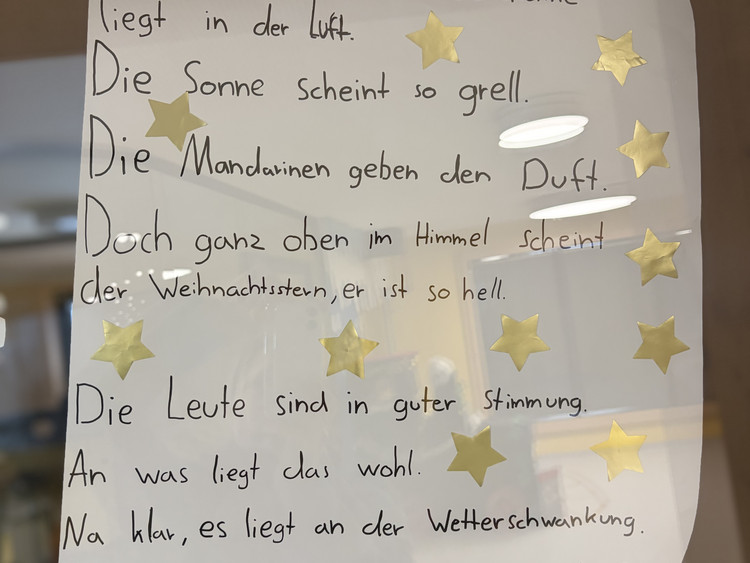 liegt in der Luft.
Die Sonne scheint so grell.
Die Mandarinen geben den Duft.
Doch ganz oben im Himmel scheint
der Weihnachtsstern, er ist so hell.
Die Leute sind in guter Stimmung.
An was liegt das wohl.
Na klar, es liegt an der Wetterschwankung.